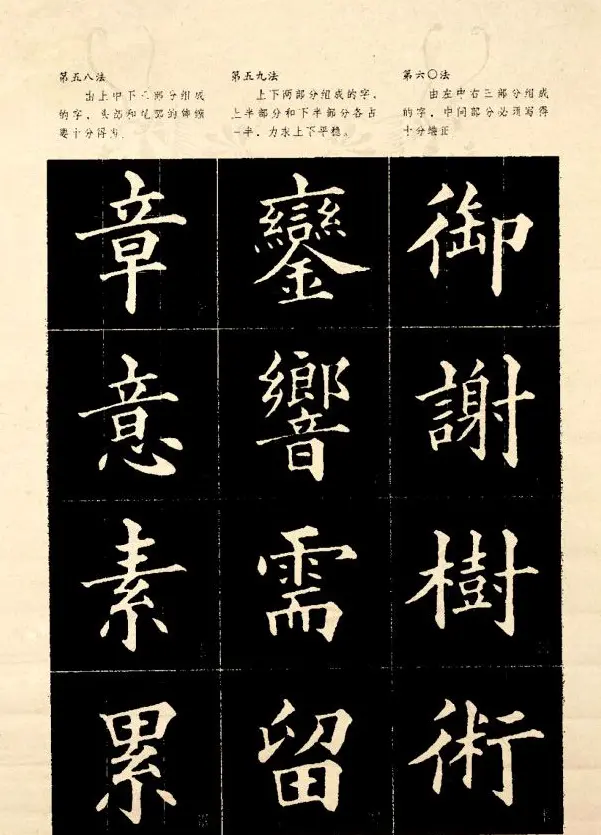 第五八法
由上中下三部分组成
的字，头部和尾部的伸缩
要十分得当
章
意
素
累
第五九法
上下两部分组成的字，
上半部分和下半部分各占
一半，力求上下平稳。
鑾
響
需
留
第六〇法
由左中右三部分组成
的字，中间部分必须写得
十分端正
御
謝
樹
術